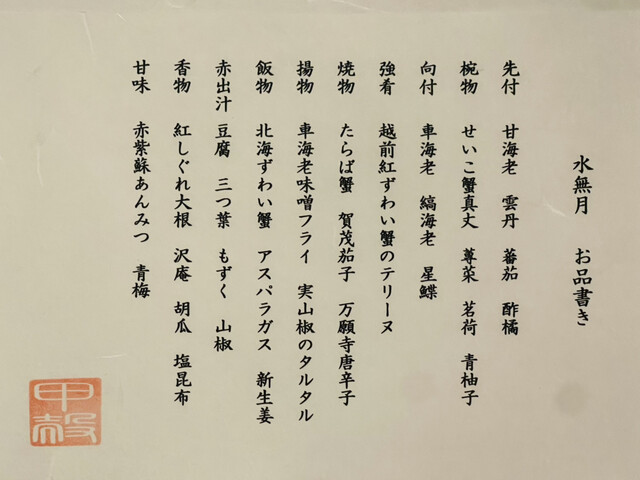 水無月 お品書き
先付 甘海老 雲丹 蕃茄 酢橘
椀物 せいこ蟹真丈 蓴菜 茗荷 青柚子
向付 車海老 縞海老 星鰈
強肴 越前紅ずわい蟹のテリーヌ
焼物 たらば蟹 賀茂茄子 万願寺唐辛子
揚物 車海老味噌フライ 実山椒のタルタル
飯物 北海ずわい蟹 アスパラガス 新生姜
赤出汁 豆腐 三つ葉 もずく 山椒
香物 紅しぐれ大根 沢庵 胡瓜 塩昆布
甘味 赤紫蘇あんみつ 青梅
甲殻